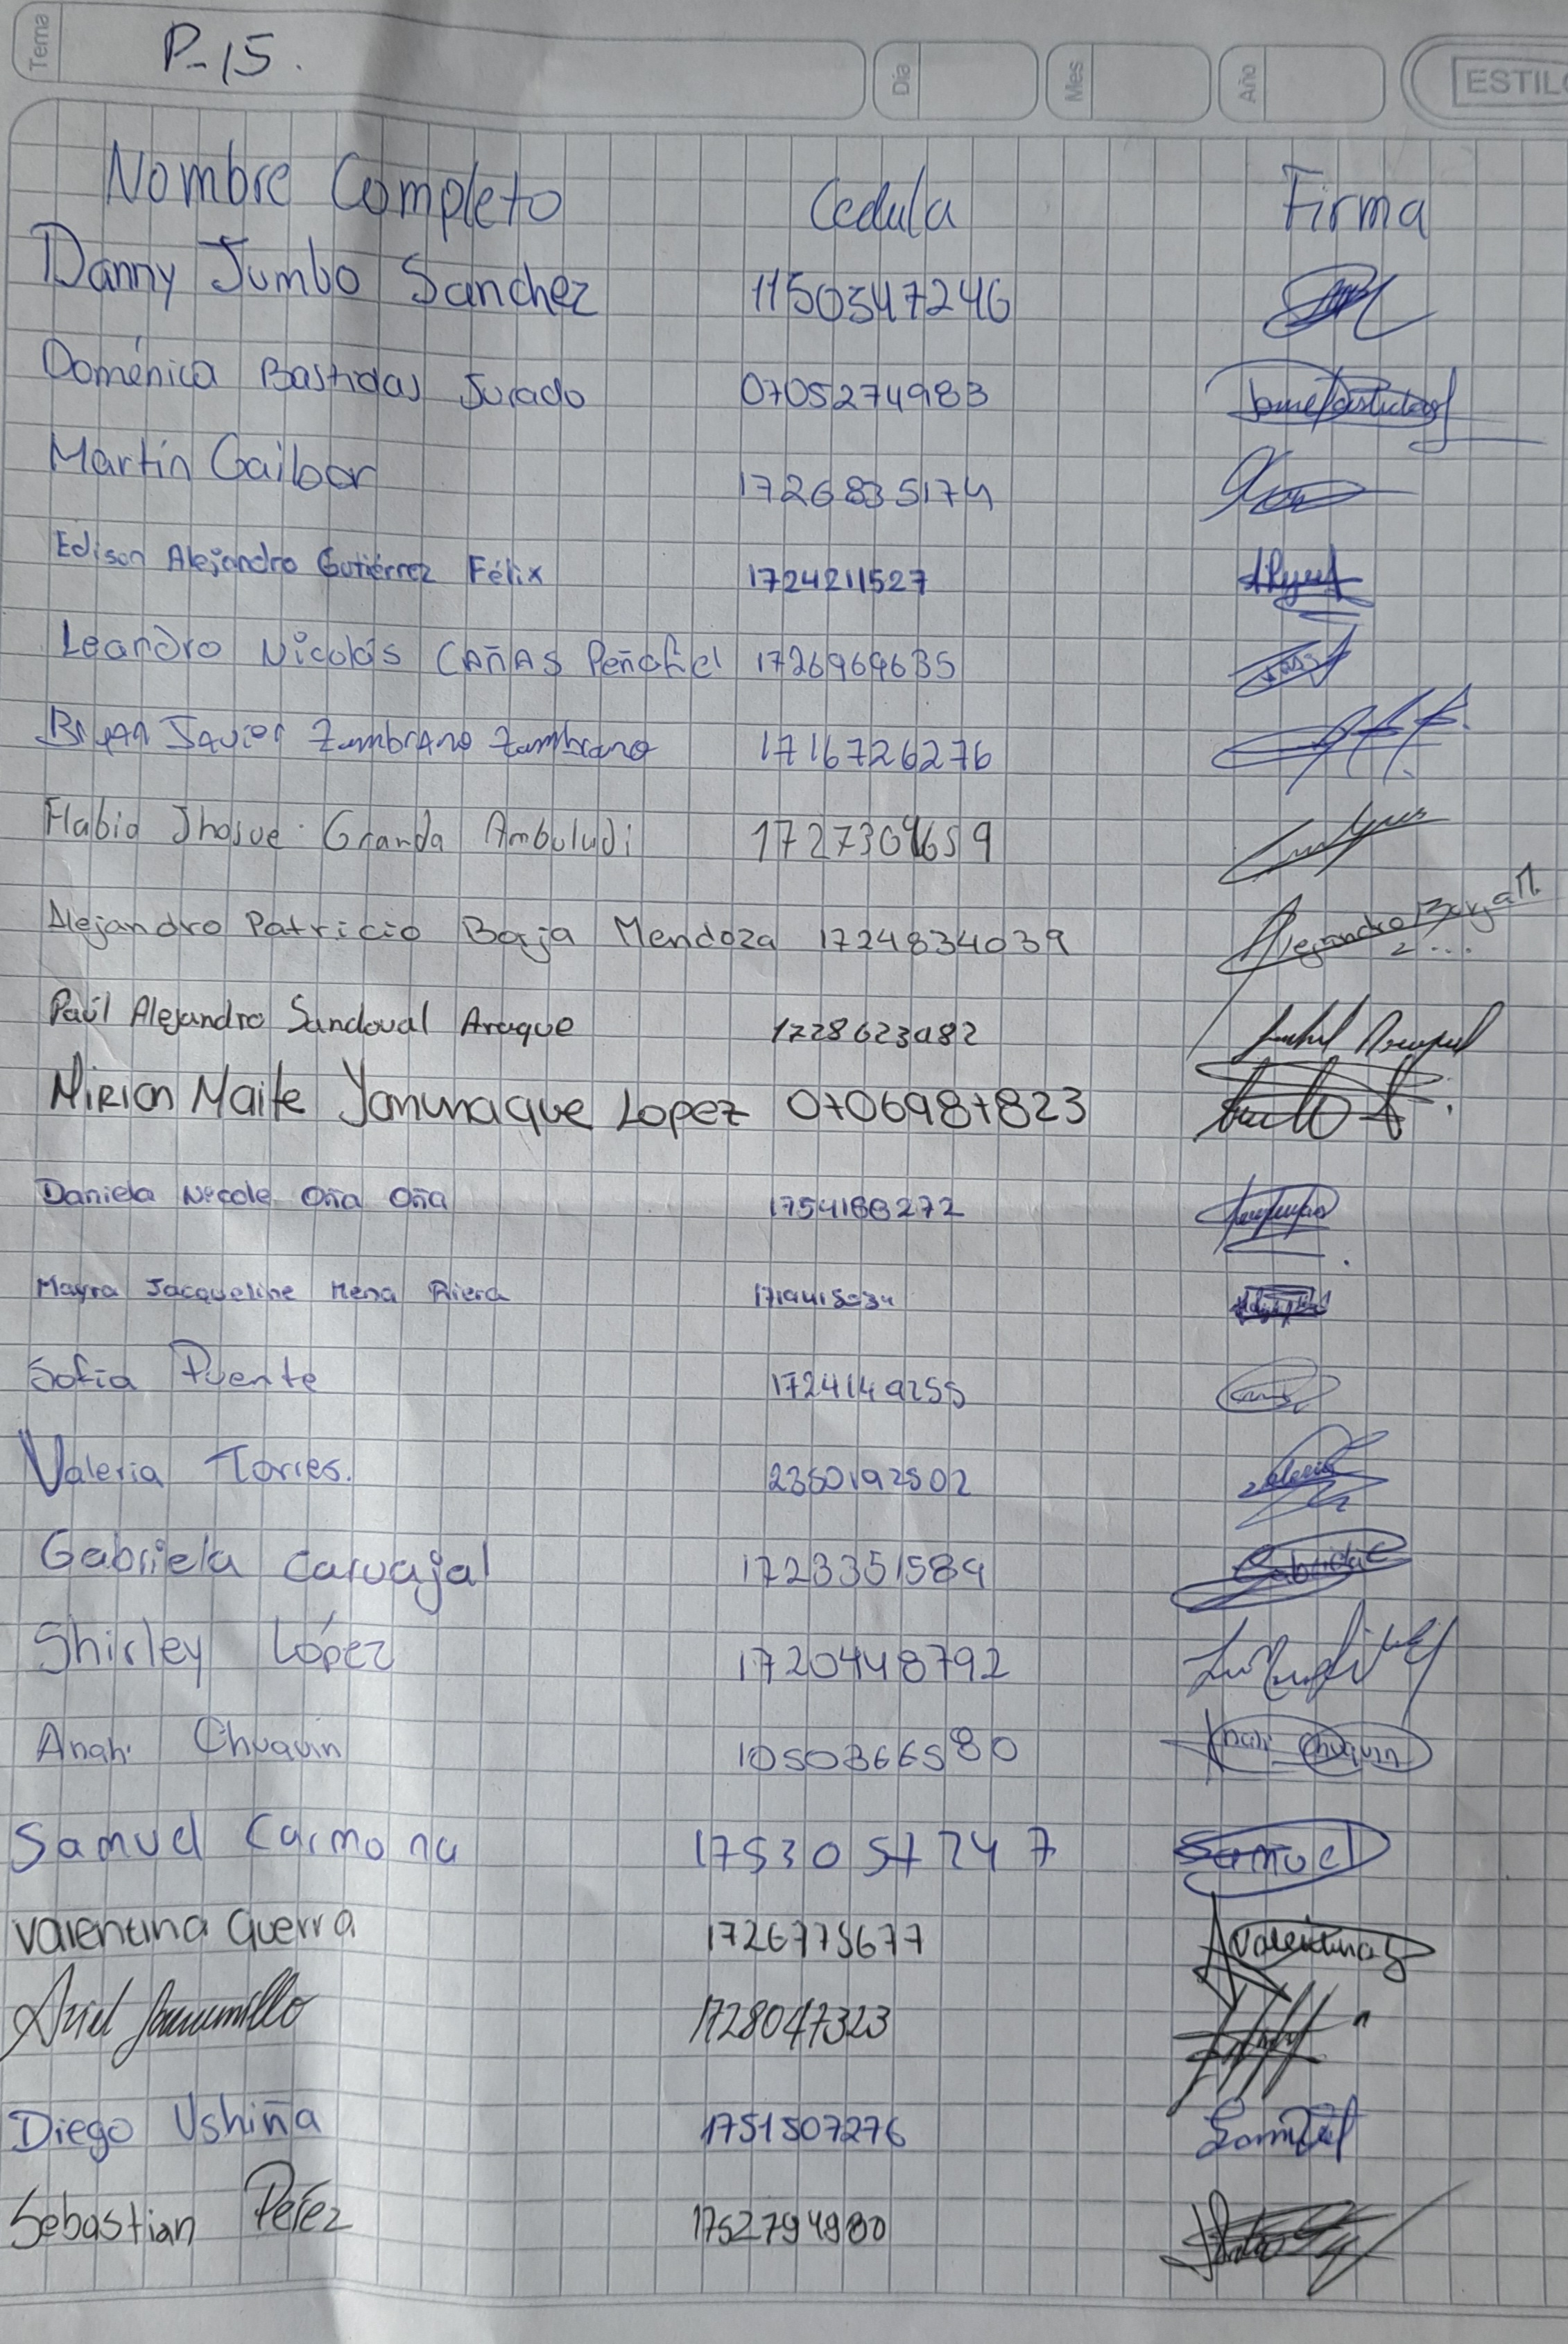 Tema P-15. Día Mes Año ESTILO
Nombre Completo Cedula Firma
Danny Jumbo Sanchez 1150347246
Doménica Bastidas Jurado 0705274983
Martín Gaibor 1726835174
Edison Alejandro Gutiérrez Félix 1724211527
Leandro Nicolás CAÑAS Peñafiel 1726969635
Bryan Javier Zambrano Zambrano 1716726276
Flabio Jhosue Granda Ambuludi
Alejandro Patricio Borja Mendoza 1724834039 Alejandro Borja M.
Paúl Alejandro Sandoval Araque
Mirian Maite Yamunaque Lopez 0706987823
Daniela Nicole Oña Oña
Mayra Jacqueline Mena Riera
Sofía Puente 1724149255
Valeria Torres. 2350192502 Valeria
Gabriela Carvajal 1723351589 Gabriela C
Shirley López 1720448792
Anahi Chuquin 1050366580 Anahi Chuquin
Samuel Carmona 1753057247 Samuel
Valentina Guerra 1726775677 Valentina G
Ariel Jaramillo 1728047323
Diego Ushiña 1751507276
Sebastian Pérez 1752794980